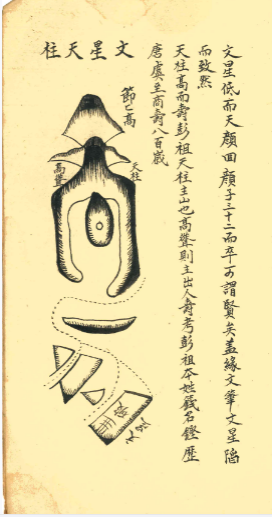 文星低而天顏回顏子三十二而卒可謂賢矣蓋緣文筆文星陷
而致然
天柱高而壽彭祖天柱主山也高聳則主出人壽考彭祖本姓籛名鏗歷
唐虞至商壽八百歲
文星天柱
節節高
天柱
高聳